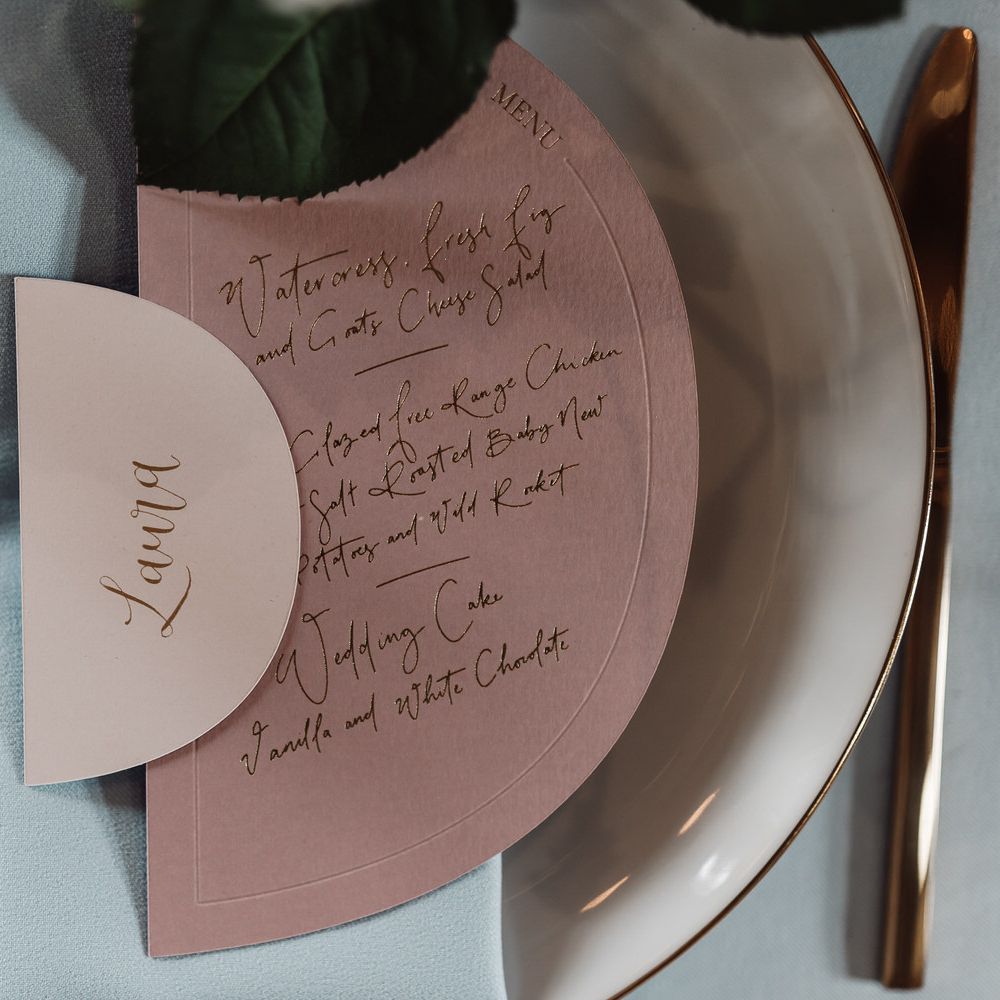 MENU
Watercress, Fresh Fig
and Goats Cheese Salad
Glazed Free Range Chicken
Salt Roasted Baby New
Potatoes and Wild Rocket
Wedding Cake
Vanilla and White Chocolate
Laura